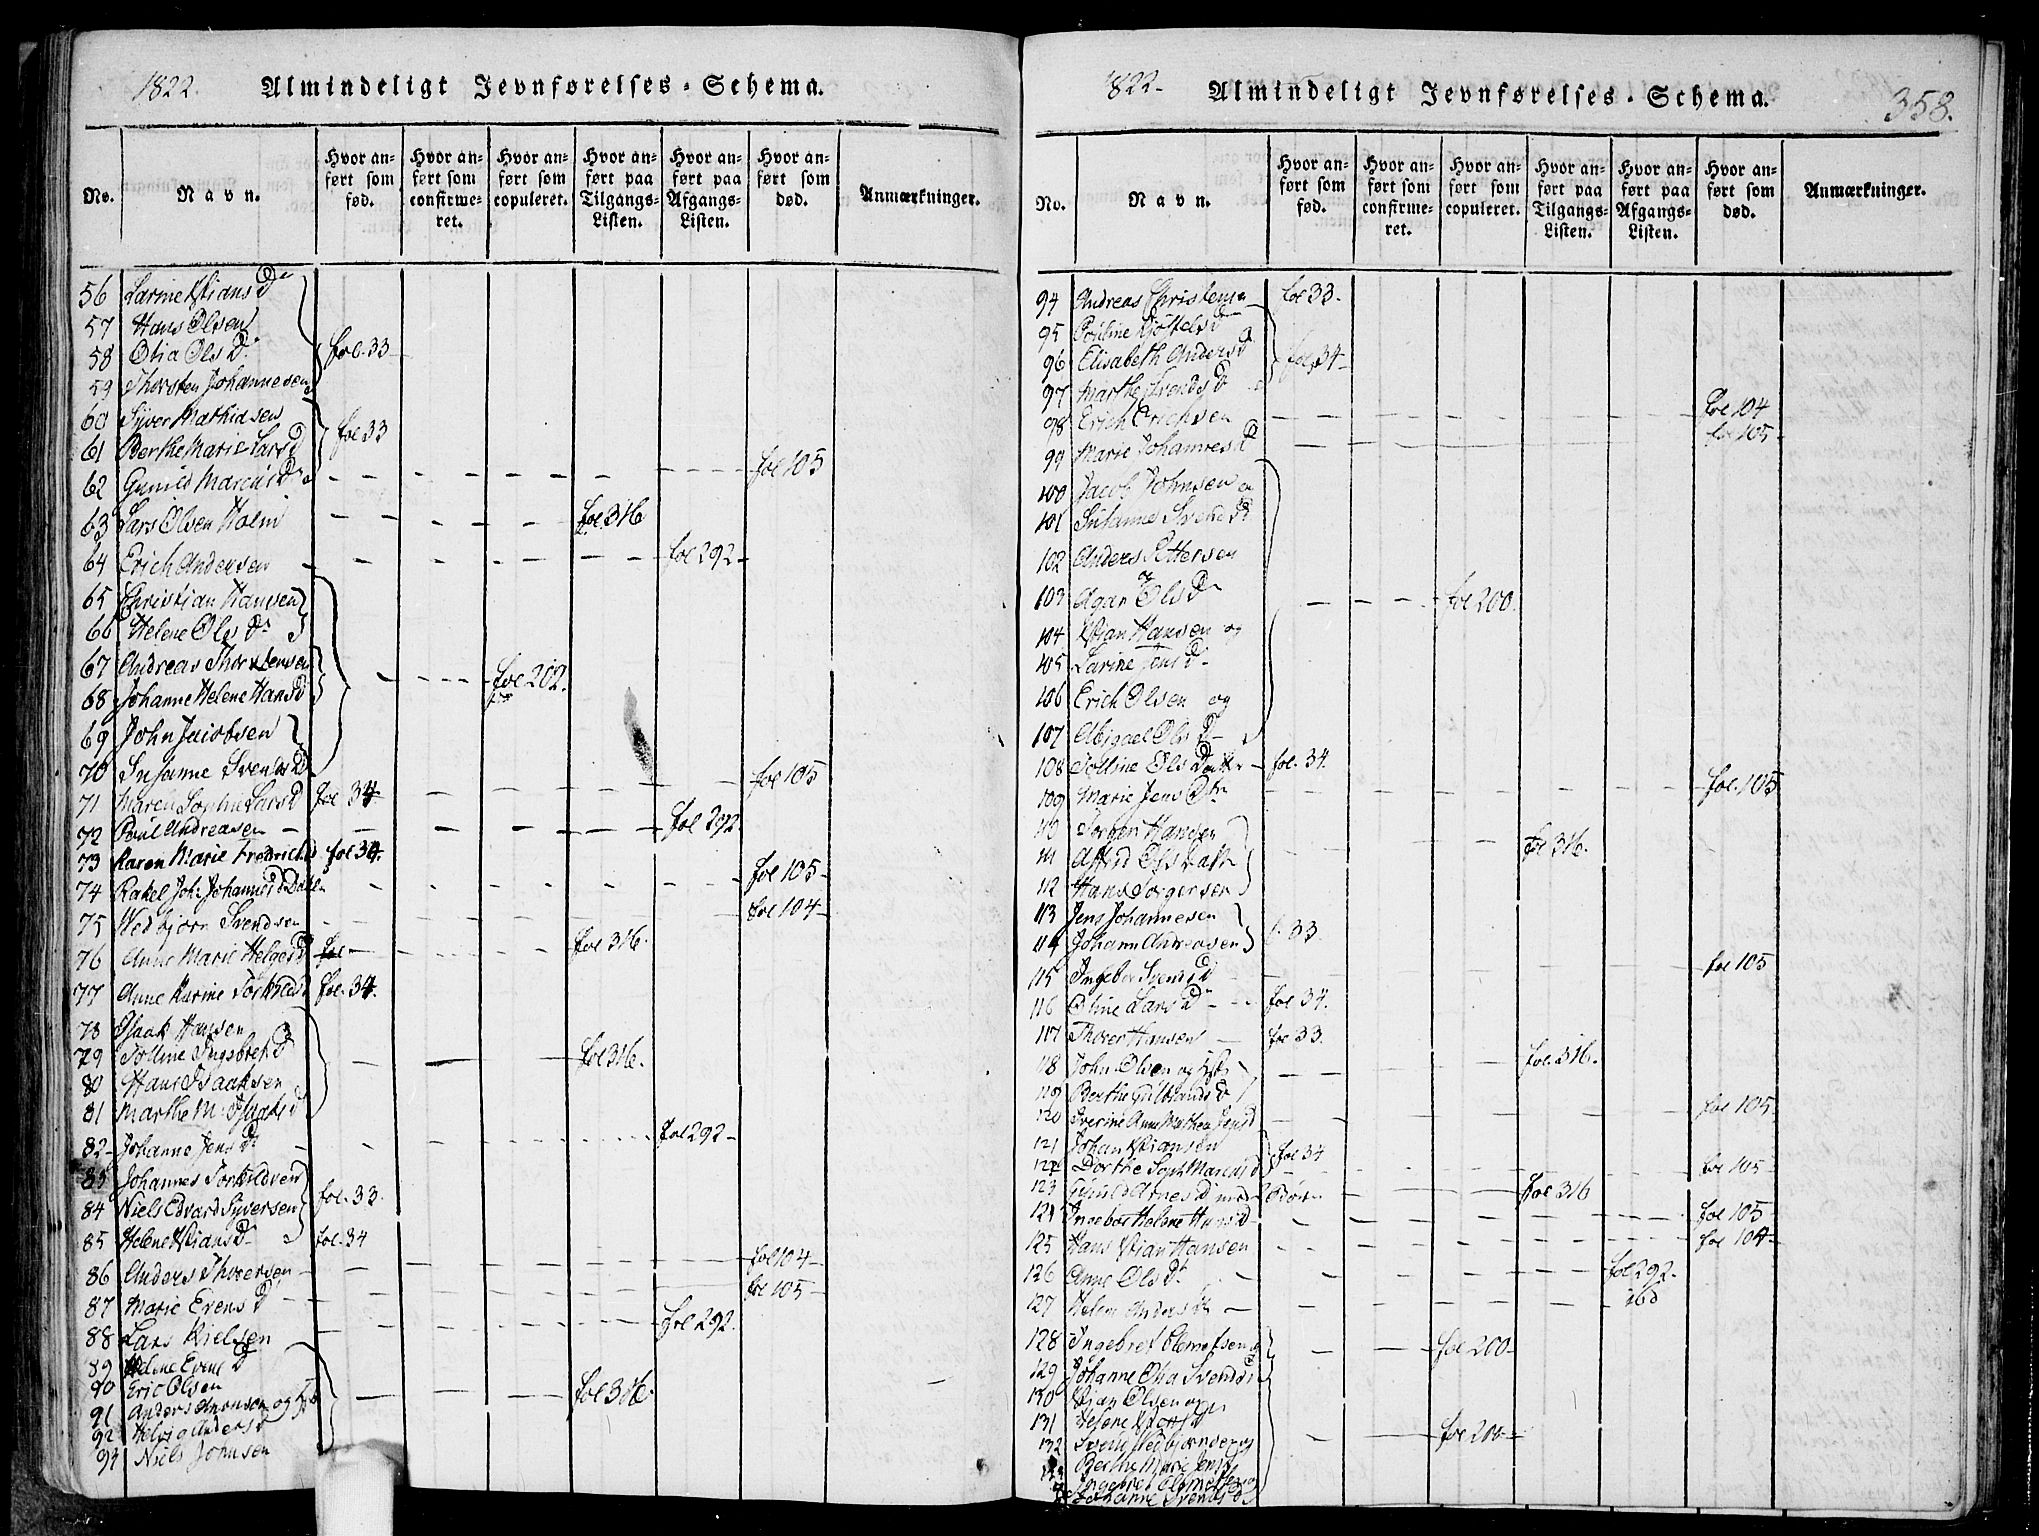 1822. Almindeligt Jevnførelses-Schema.
No. Navn. Hvor anført som fød. Hvor anført som confirmeret. Hvor anført som copuleret. Hvor anført paa Tilgangs-Listen. Hvor anført paa Afgangs-Listen. Hvor anført som død. Anmærkninger.
56 Larine Xtians D
57 Hans Olsen
58 Olia Ols D fol. 33
59 Thorsten Johannesen
60 Syver Mathiasen
61 Berthe Marie Lars D fol 33
62 Gunild Marcus D fol 105
63 Lars Olsen Holm fol. 316
64 Erich Andersen fol 292
65 Christian Hansen
66 Helene Ols D
67 Andreas Thorstensen
68 Johanne Helene Hans D fol 202.
69 John Jacobsen
70 Susanne Svends D fol 105
71 Maren Sophie Lars D fol 34
72 Poul Andreasen fol 292
73 Karen Marie Fredrichs fol 34.
74 Rakel Joh: Johannes Datter fol 105
75 Wedbjørn Svendsen fol 104
76 Anne Marie Helges D fol 316.
77 Anne Karine Torkilds D fol. 34.
78 Isaak Hansen
79 Tolline Ingebret D fol 316.
80 Hans Isaaksen
81 Marthe M: Isaks D
82 Johanne Jens D fol 292
83 Johannes Torkildsen
84 Niels Edvard Syversen fol. 33.
85 Helene Xtians D fol. 34
86 Anders Thoersen fol 104
87 Marie Evens D fol 105
88 Lars Nielsen fol 292.
89 Helene Evens D
90 Eric Olsen
91 Anders Amonsen og fol 316.
92 Helvig Anders D
93 Niels Johnsen
1822 Almindeligt Jevnførelses-Schema. 358.
No. Navn. Hvor anført som fød. Hvor anført som confirmeret. Hvor anført som copuleret. Hvor anført paa Tilgangs-Listen. Hvor anført paa Afgangs-Listen. Hvor anført som død. Anmærkninger.
94 Andreas Christensen fol 33.
95 Pouline Kjøstels D
96 Elisabeth Anders D fol. 34
97 Marthe Svends D
98 Erich Erichsen fol 104
99 Marie Johannes D fol 105
100 Jacob Johnsen og
101 Susanne Svens D
102 Anders Pettersen og
103 Agan Ols D fol 200.
104 Xtjan Hansen og
105 Larine Jens D
106 Erich Olsen og
107 Abigael Ols D
108 Tolline Ols Datter fol. 34.
109 Marie Jens D fol. 105
110 Torger Hansen
111 Astrid Ols Datt fol 316.
112 Hans Torgersen
113 Jens Johannesen
114 Johan Andreasen f. 33
115 Ingebor Svens D fol 105
116 Oline Lars D fol 34.
117 Thorer Hansen fol 33.
118 John Olsen og fol. 316.
119 Berthe Gulbrands D
120 Sverine Anne Mathea Jens D fol 105
121 Johan Xtiansen
122 Dorthe Soph Marcus D fol 34 fol 105
123 Gunild Arnes D med Børn fol 316
124 Ingebor Helene Hans D fol 105
125 Hans Xtian Hansen fol 104
126 Anne Ols D fol 292.
127 Helene Anders D ibd
128 Ingebret Clemetsen og fol 200
129 Johanne Olia Svends D
130 Xtian Olsen og
131 Helene
132 Svend Wedbjørnsen og fol 200
Berthe Marie Jens D
Ingebret Clemetsen og
Johanne Svends D